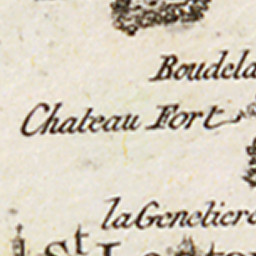 Boudela
Chateau Fort
la Genetiere
St